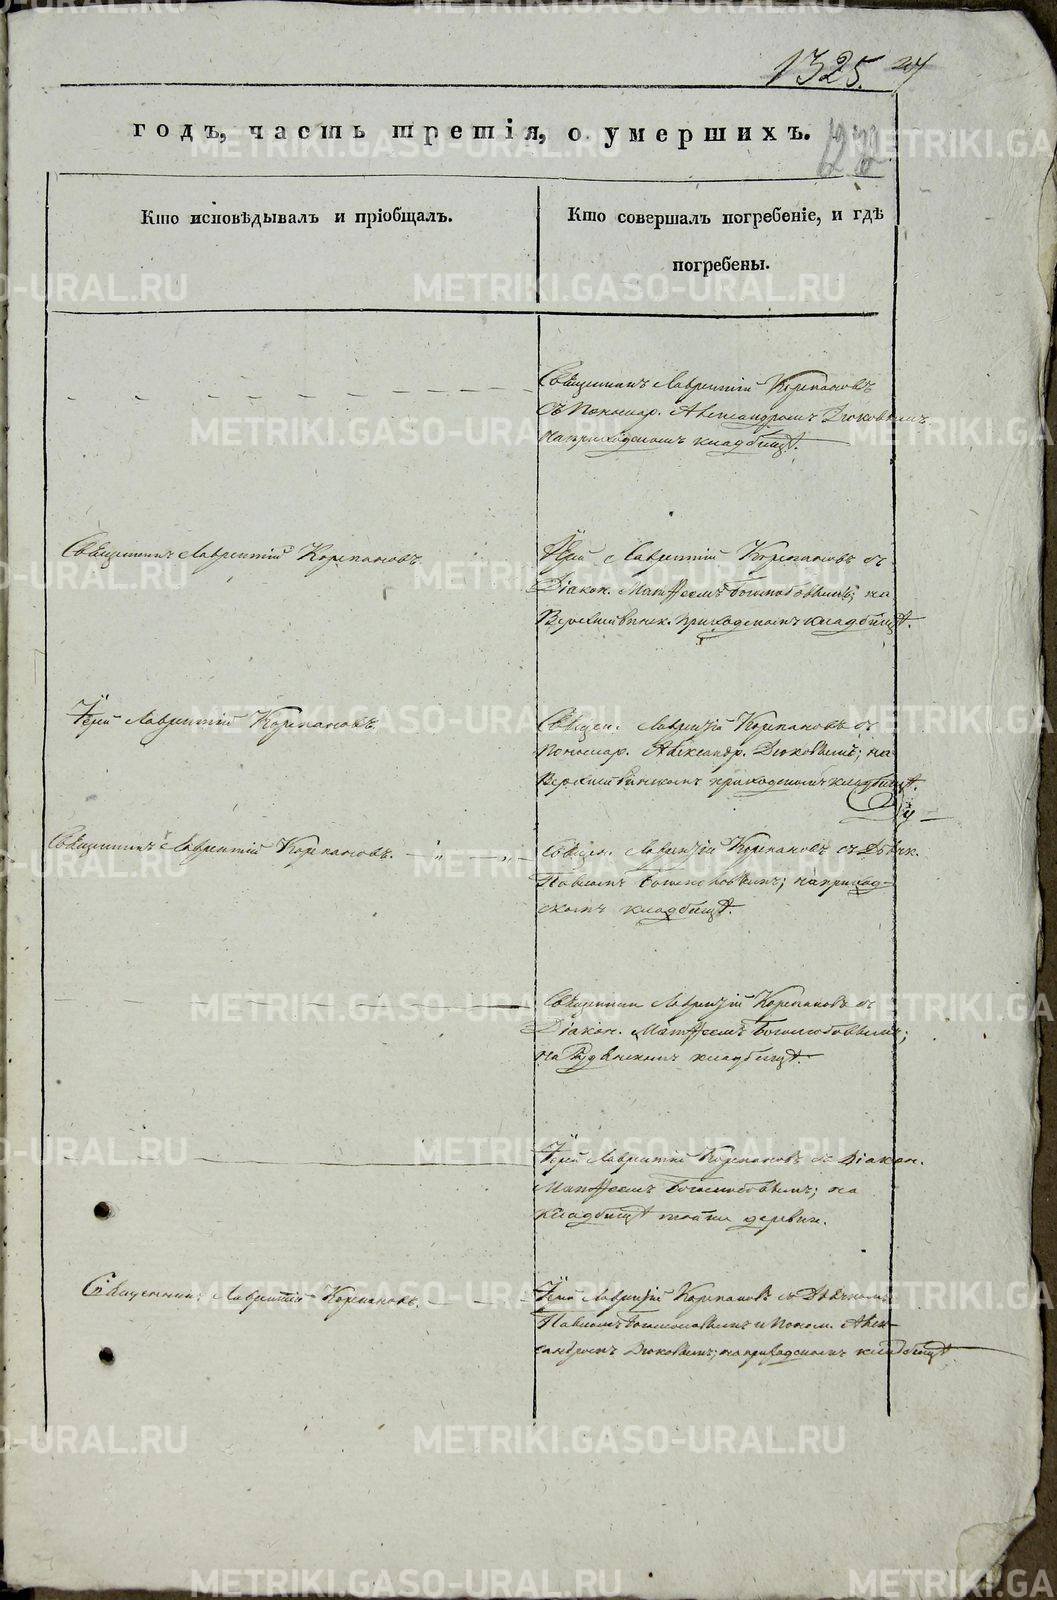 1325.
годъ, часть третія, о умершихъ.
22
Кто исповѣдывалъ и пріобщалъ.
Кто совершалъ погребеніе, и гдѣ
погребены.
Священникъ Лаврентій Корепановъ
съ Пономар. Александромъ
на приходскомъ кладбищѣ.
Священникъ Лаврентій Корепановъ.
Іерей Лаврентій Корепановъ съ
Діакон. Матѳеемъ Боголюбовымъ; на
приходскомъ кладбищѣ.
Іерей Лаврентій Корепановъ.
Священ. Лаврентій Корепановъ съ
Пономар. Александр. на
приходскомъ кладбищѣ.
Священникъ Лаврентій Корепановъ.
Священ. Лаврентій Корепановъ съ Дьячк.
Павломъ на приход-
скомъ кладбищѣ.
Священник Лаврентій Корепановъ съ
Діакон. Матѳеемъ Боголюбовымъ;
на кладбищѣ.
Іерей Лаврентій Корепановъ съ Діакон.
Матѳеемъ Боголюбовымъ; на
кладбищѣ той же деревни.
Священник. Лаврентій Корепановъ.
Іерей Лаврентій Корепановъ съ Дьячкомъ
Павломъ и Поном. Алек-
сандромъ на приходскомъ кладбищѣ
METRIKI.GASO-URAL.RU